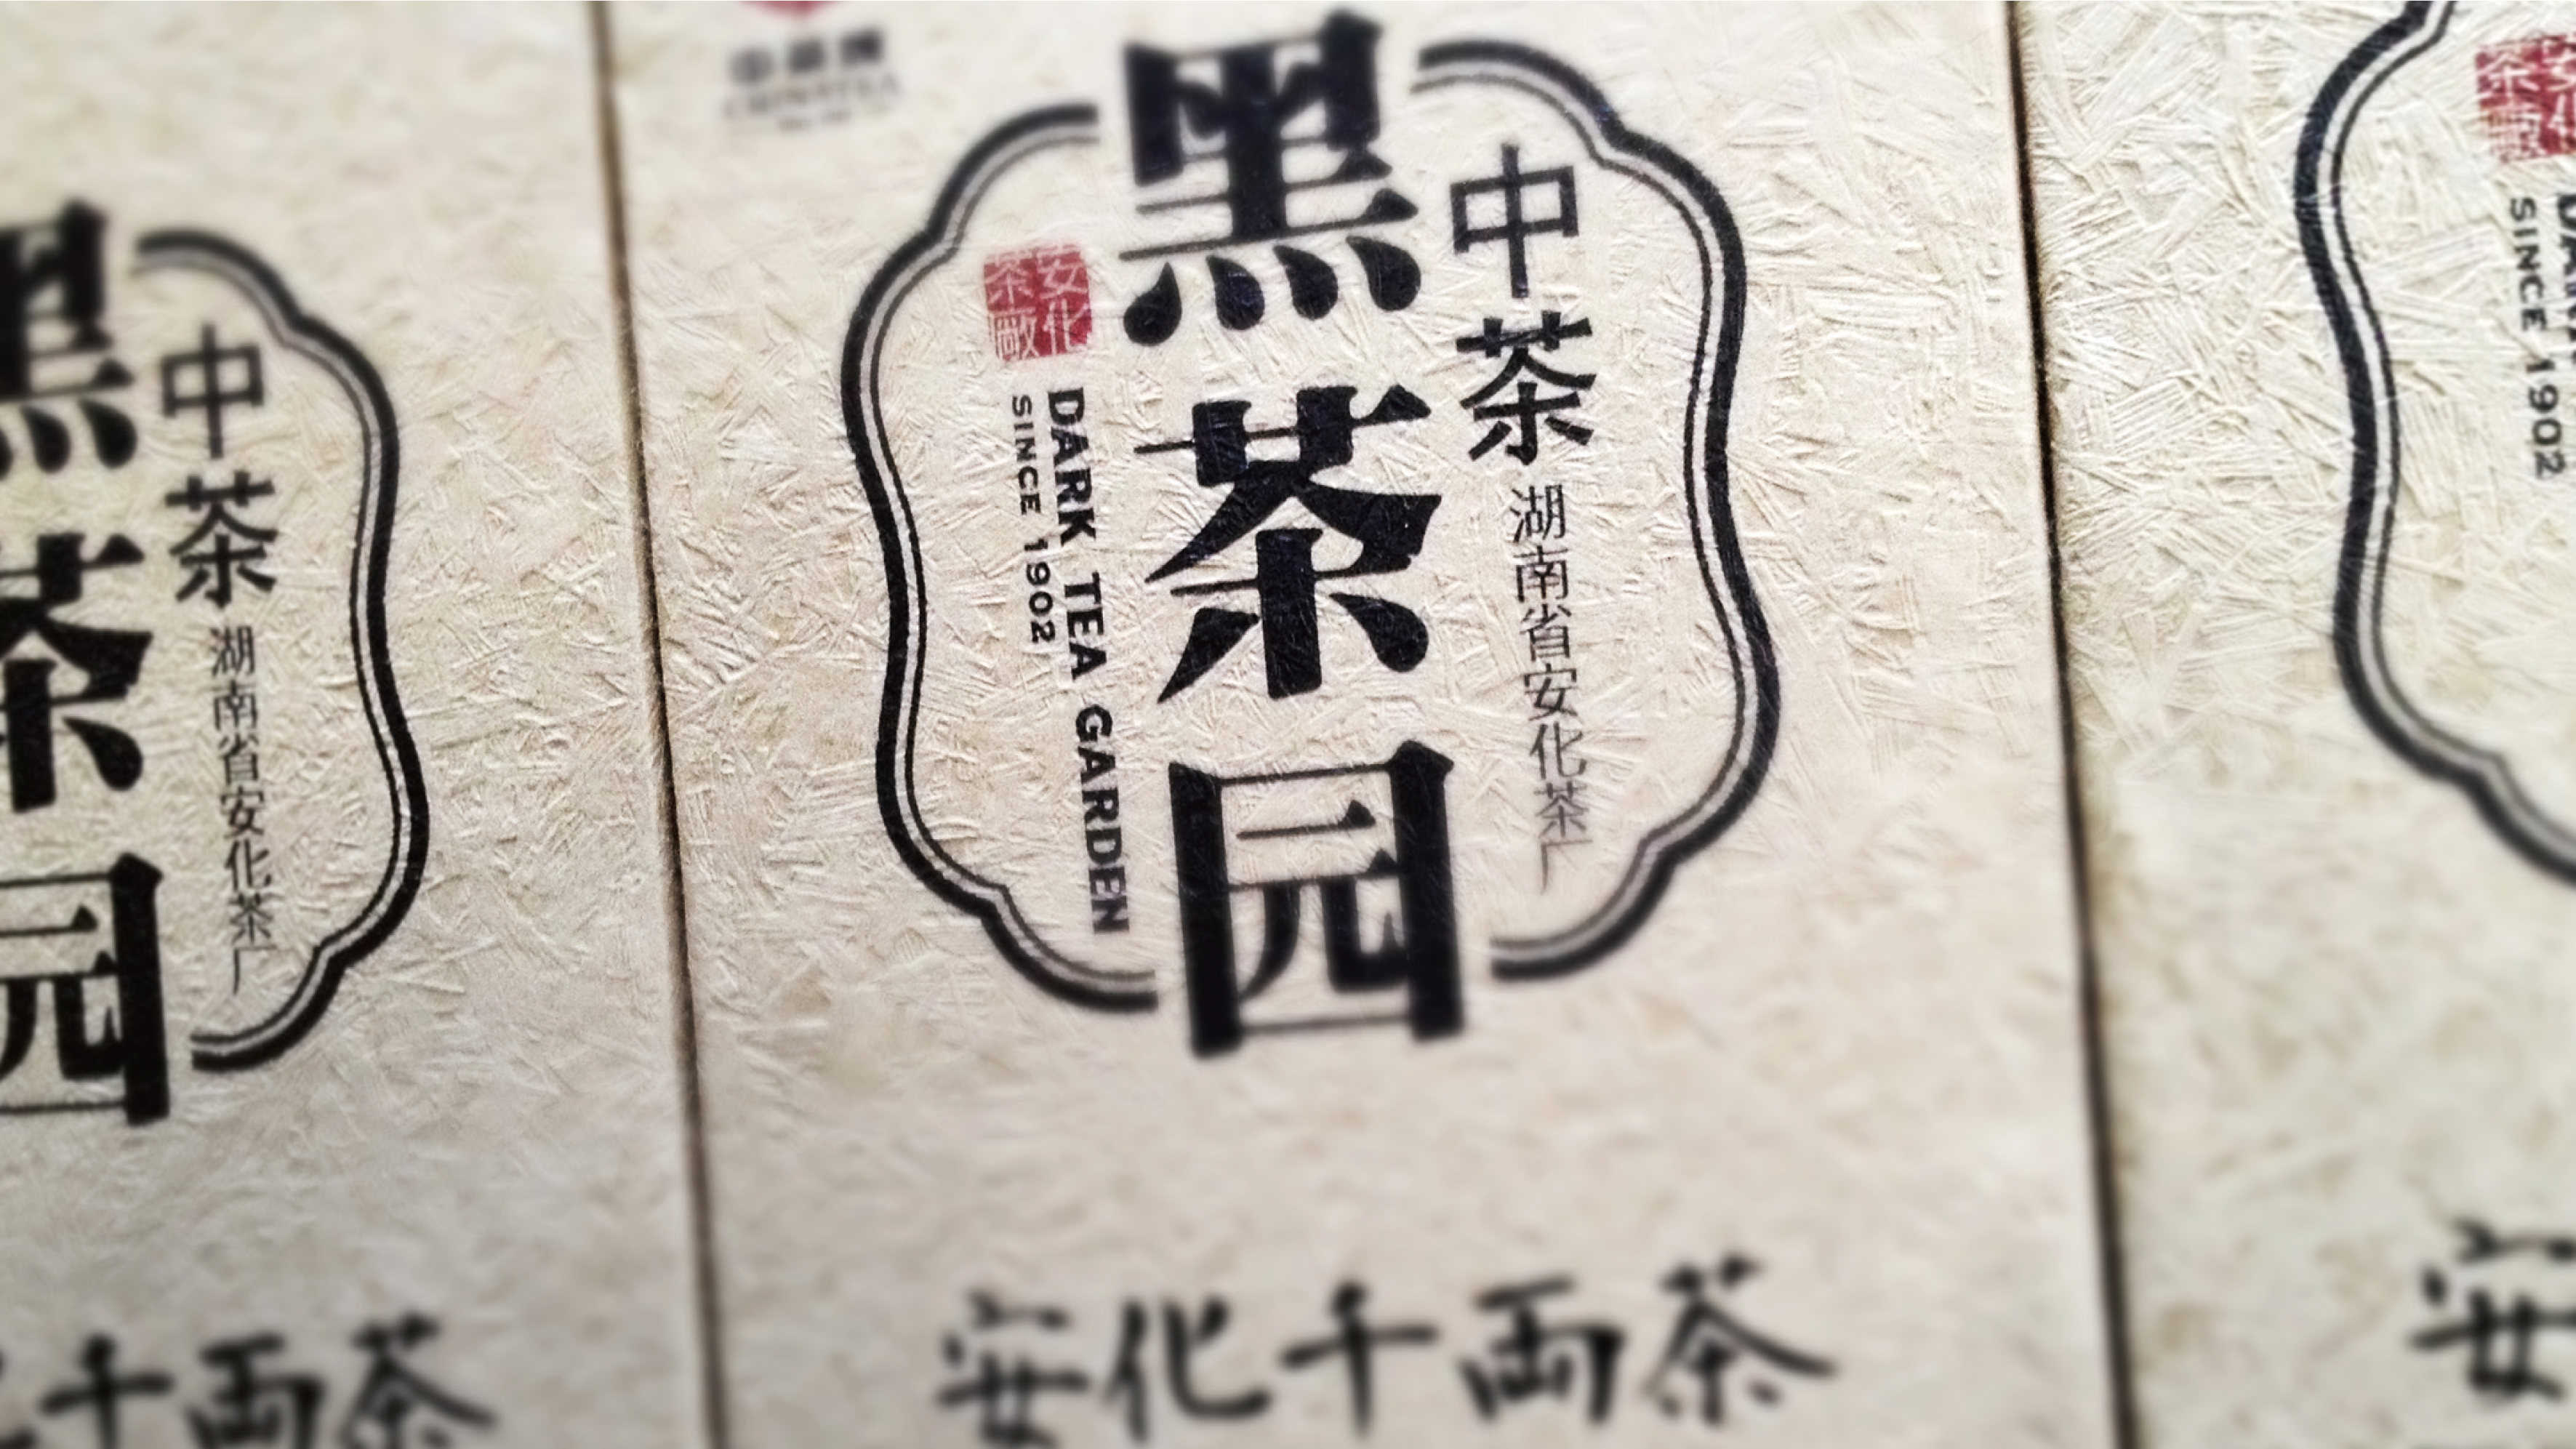 中茶牌
CHINATEA
黑茶园
中茶
湖南省安化茶厂
安化
茶廠
DARK TEA GARDEN
SINCE 1902
安化千両茶
黑茶园
中茶
湖南省安化茶厂
千両茶
安化
茶廠
SINCE 1902
安